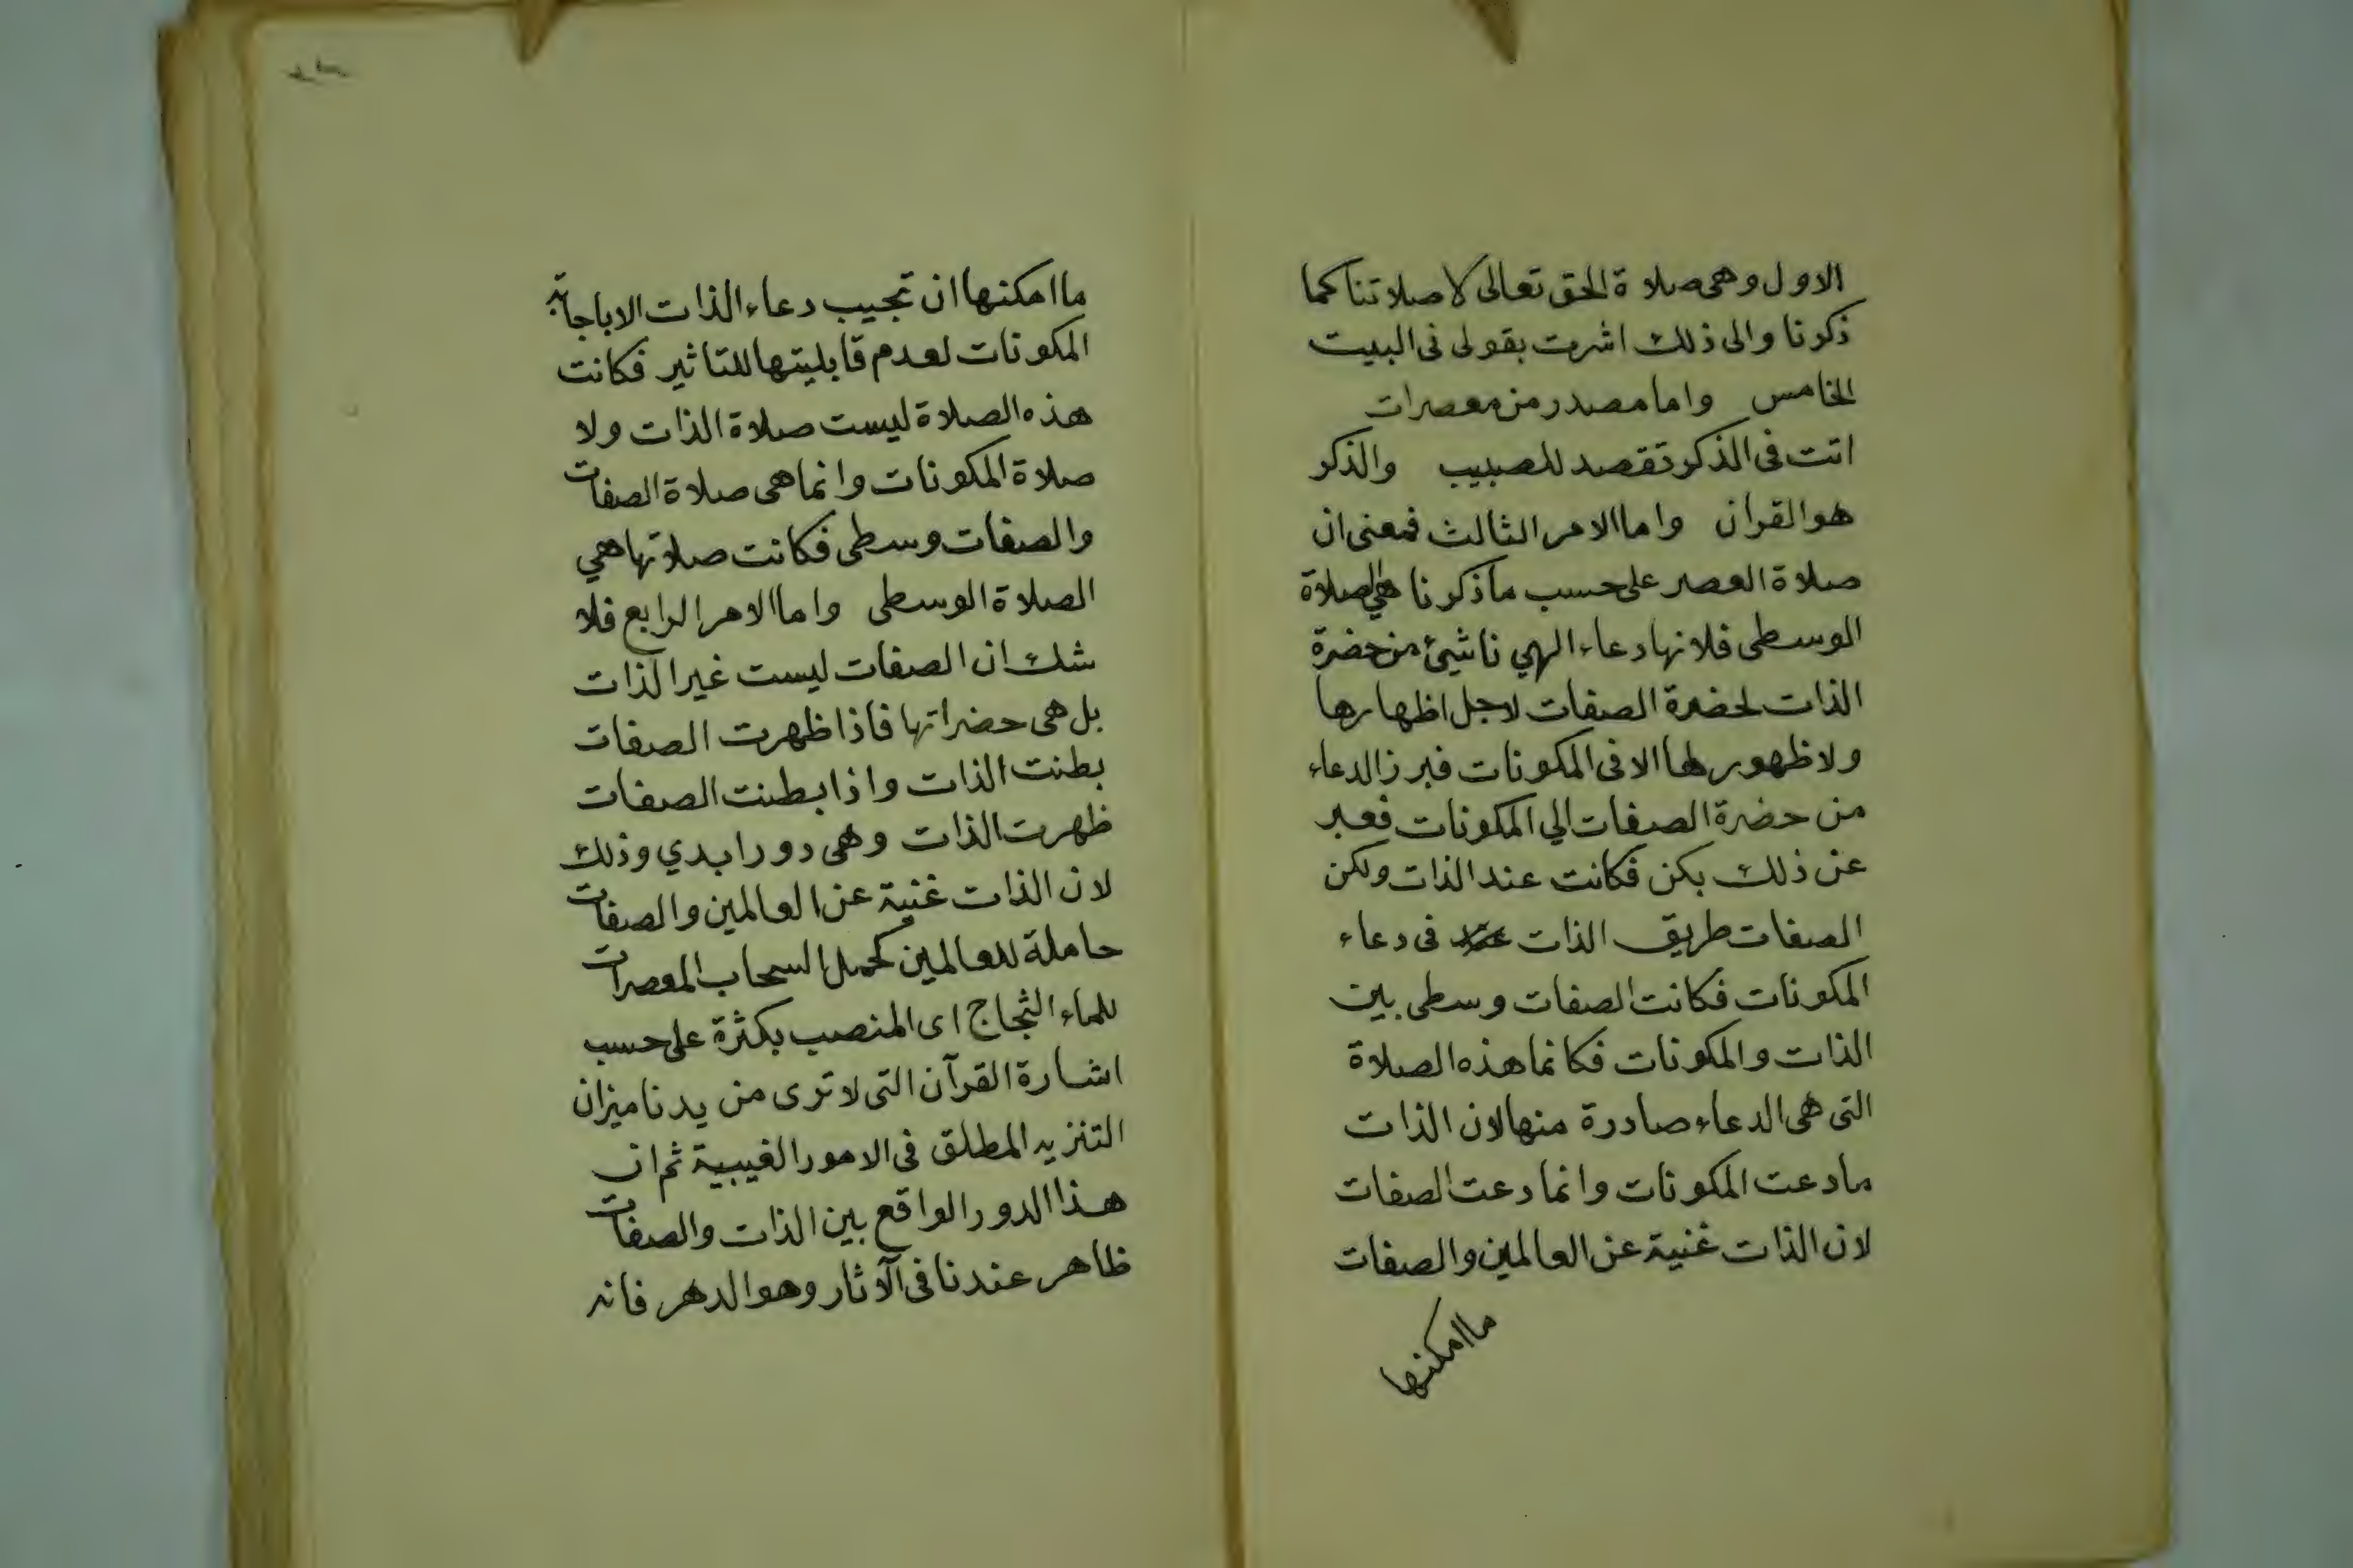 الاول وهى صلاة الحق تعالى لا صلاتنا كما
ذكرنا والى ذلك اشرت بقولى فى البيت
الخامس واما مصدر من معصرات
اتت فى الذكر تقصد للصبيب والذكر
هو القران واما الامر الثالث فمعنى ان
صلاة العصر على حسب ما ذكرنا هي الصلاة
الوسطى فلانها دعاء الهي ناشئ من حضرة
الذات لحضرة الصفات لاجل اظهارها
ولا ظهور لها الا فى المكونات فبرز الدعاء
من حضرة الصفات الي المكونات فعبر
عن ذلك بكن فكانت عند الذات ولكن
الصفات طريق الذات فى دعاء
المكونات فكانت الصفات وسطى بين
الذات والمكونات فكانما هذه الصلاة
التى هى الدعاء صادرة منها لان الذات
ما دعت المكونات وانما دعت الصفات
لان الذات غنية عن العالمين والصفات
ما امكنها
ما امكنها ان تجيب دعاء الذات الا باجابة
المكونات لعدم قابليتها للتاثير فكانت
هذه الصلاة ليست صلاة الذات ولا
صلاة المكونات وانما هى صلاة الصفات
والصفات وسطى فكانت صلاتها هي
الصلاة الوسطى واما الامر الرابع فلا
شك ان الصفات ليست غير الذات
بل هى حضراتها فاذا ظهرت الصفات
بطنت الذات واذا بطنت الصفات
ظهرت الذات وهى دور ابدي وذلك
لان الذات غنية عن العالمين والصفات
حاملة للعالمين كحمل السحاب المعصرات
للماء الثجاج اى المنصب بكثرة على حسب
اشارة القرآن التى لا ترى من يدنا ميزان
التنزيه المطلق فى الامور الغيبية ثم ان
هذا الدور الواقع بين الذات والصفات
ظاهر عندنا فى الآثار وهو الدهر فانه